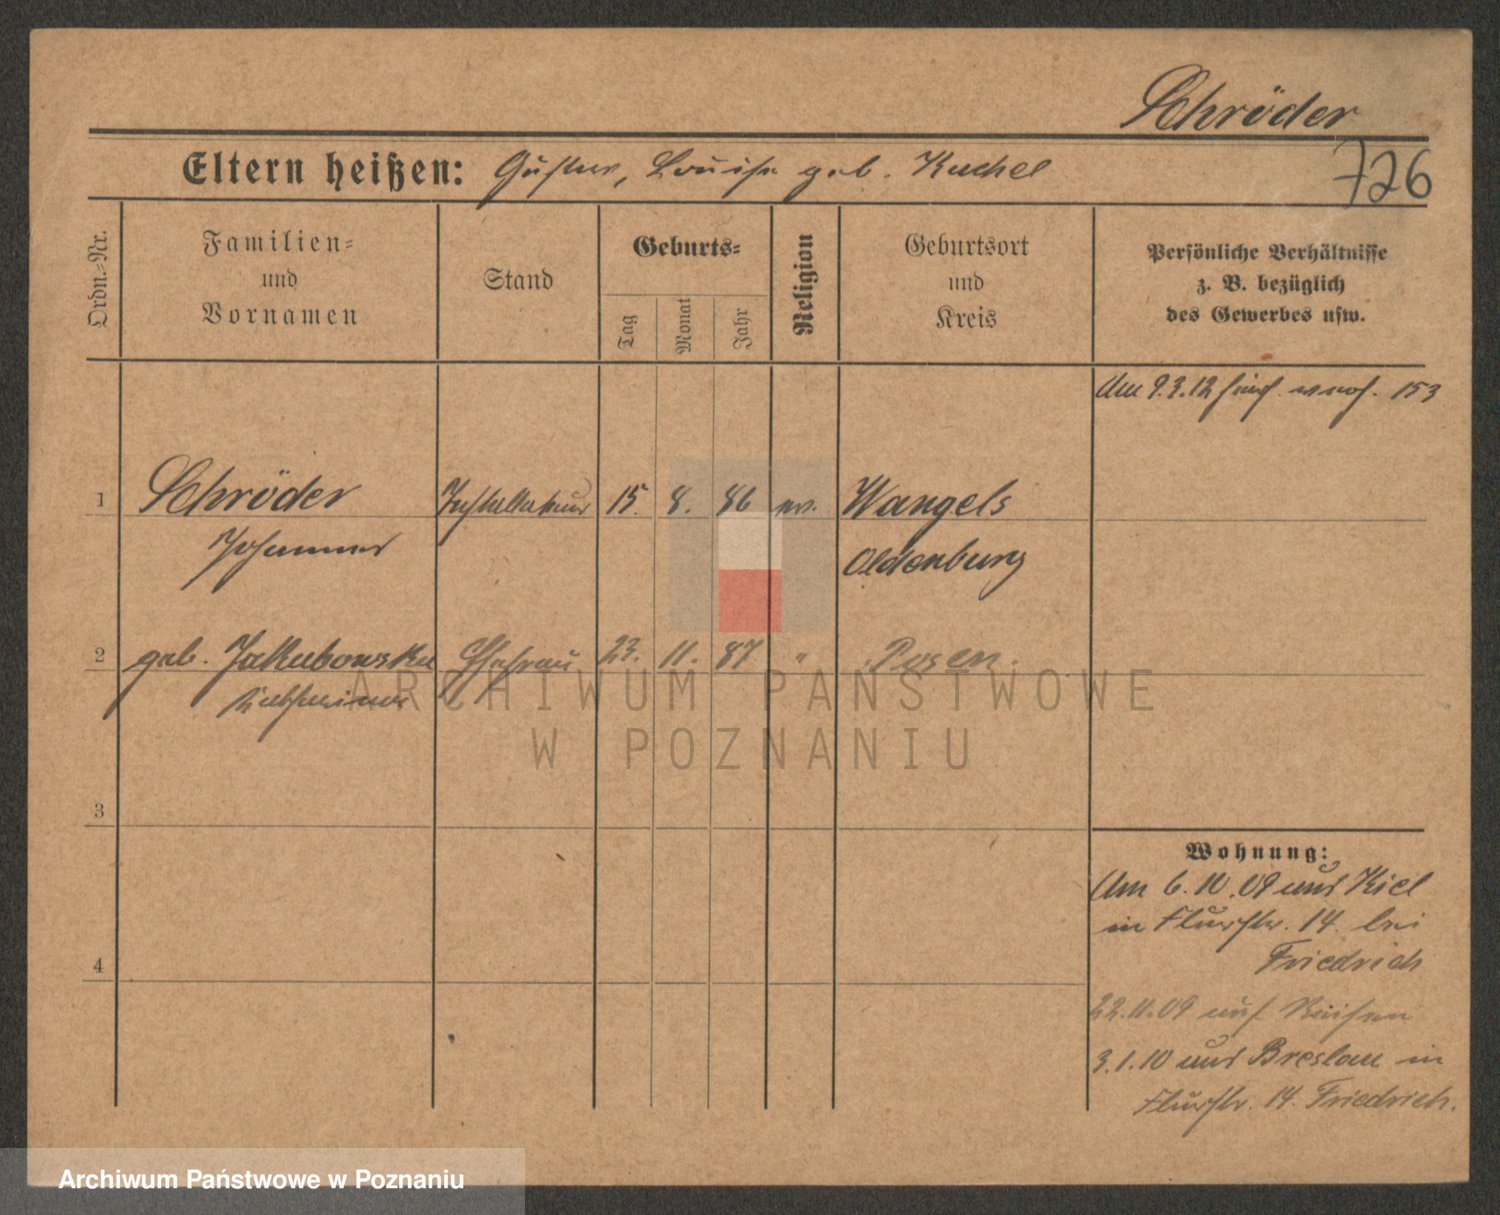 Schröder
Eltern heißen: Gustav, Louise geb. Kuchel
726
Ordn.=Nr.
Familien=
und
Vornamen
Stand
Geburts=
Tag
Monat
Jahr
Religion
Geburtsort
und
Kreis
Persönliche Verhältnisse
z. B. bezüglich
des Gewerbes usw.
Am 9.3.12 153
1 Schröder Installateur 15. 8. 86 ev. Wangels
Johannes Oldenburg
2 geb. Jakubowska Ehefrau 23. 11. 87 " Posen.
3
4
Wohnung:
Am 6.10.09 aus Kiel
in Flurstr. 14. bei
Friedrich
22.11.09 auf Reisen
3.1.10 aus Breslau in
Flurstr. 14. Friedrich.
ARCHIWUM PAŃSTWOWE
W POZNANIU
Archiwum Państwowe w Poznaniu